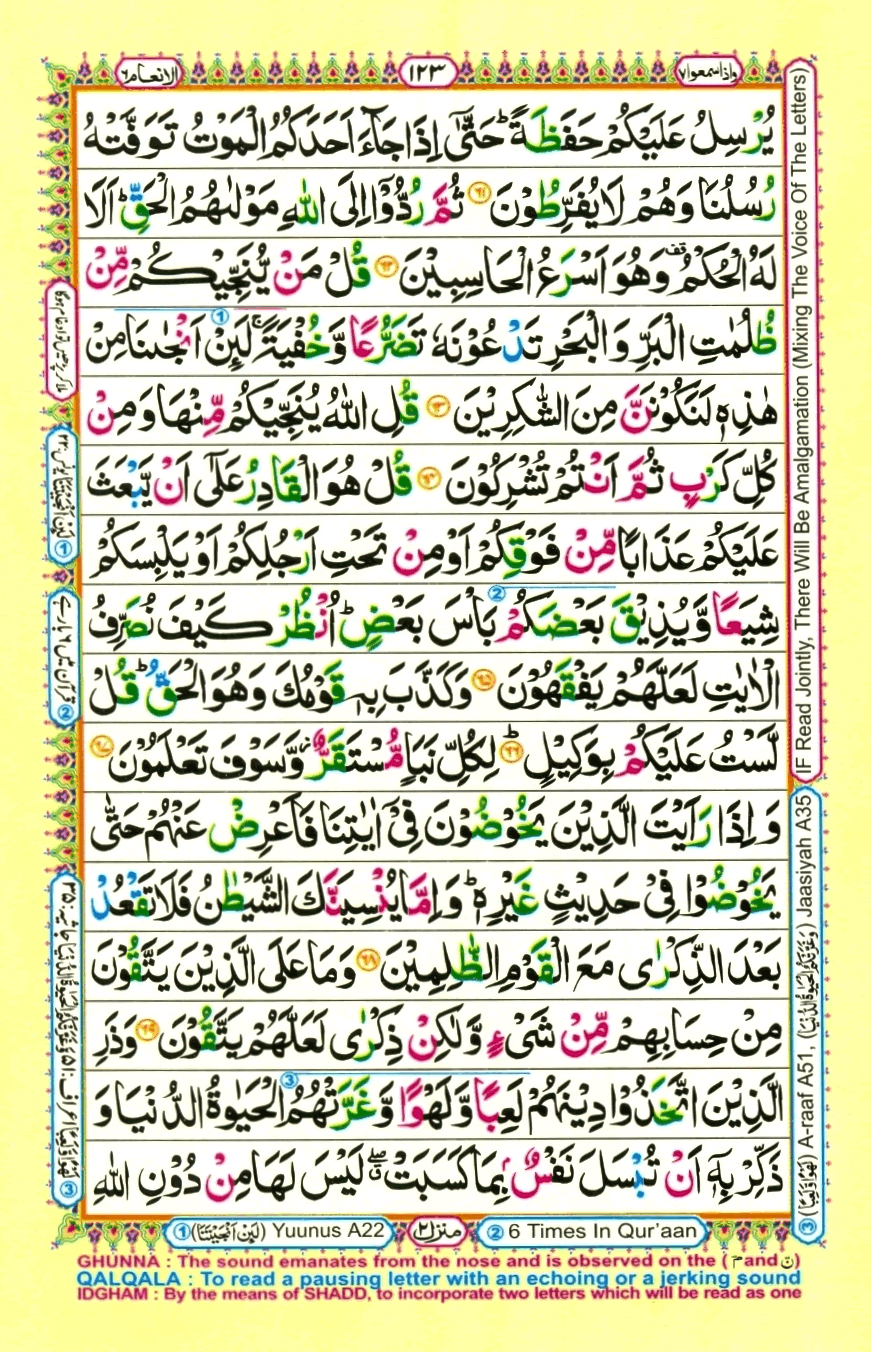 واذا سمعوا ٧
١٢٣
الانعام ٦
يُرْسِلُ عَلَيْكُمْ حَفَظَةً ؕ حَتّٰۤى اِذَا جَآءَ اَحَدَكُمُ الْمَوْتُ تَوَفَّتْهُ
رُسُلُنَا وَهُمْ لَا يُفَرِّطُوْنَ ﴿۶۱﴾ ثُمَّ رُدُّوْۤا اِلَى اللّٰهِ مَوْلٰىهُمُ الْحَقِّ ؕ اَلَا
لَهُ الْحُكْمُ ۟ وَهُوَ اَسْرَعُ الْحَاسِبِيْنَ ﴿۶۲﴾ قُلْ مَنْ يُّنَجِّيْكُمْ مِّنْ
ظُلُمٰتِ الْبَرِّ وَالْبَحْرِ تَدْعُوْنَهٗ تَضَرُّعًا وَّخُفْيَةً ۚ لَئِنْ اَنْجٰىنَا مِنْ
هٰذِهٖ لَنَكُوْنَنَّ مِنَ الشّٰكِرِيْنَ ﴿۶۳﴾ قُلِ اللّٰهُ يُنَجِّيْكُمْ مِّنْهَا وَمِنْ
كُلِّ كَرْبٍ ثُمَّ اَنْتُمْ تُشْرِكُوْنَ ﴿۶۴﴾ قُلْ هُوَ الْقَادِرُ عَلٰۤى اَنْ يَّبْعَثَ
عَلَيْكُمْ عَذَابًا مِّنْ فَوْقِكُمْ اَوْ مِنْ تَحْتِ اَرْجُلِكُمْ اَوْ يَلْبِسَكُمْ
شِيَعًا وَّيُذِيْقَ بَعْضَكُمْ بَاْسَ بَعْضٍ ؕ اُنْظُرْ كَيْفَ نُصَرِّفُ
الْاٰيٰتِ لَعَلَّهُمْ يَفْقَهُوْنَ ﴿۶۵﴾ وَكَذَّبَ بِهٖ قَوْمُكَ وَهُوَ الْحَقُّ ؕ قُلْ
لَّسْتُ عَلَيْكُمْ بِوَكِيْلٍ ﴿۶۶﴾ لِكُلِّ نَبَاٍ مُّسْتَقَرٌّ ۫ وَّسَوْفَ تَعْلَمُوْنَ ﴿۶۷﴾
وَاِذَا رَاَيْتَ الَّذِيْنَ يَخُوْضُوْنَ فِىْۤ اٰيٰتِنَا فَاَعْرِضْ عَنْهُمْ حَتّٰى
يَخُوْضُوْا فِىْ حَدِيْثٍ غَيْرِهٖ ؕ وَاِمَّا يُنْسِيَنَّكَ الشَّيْطٰنُ فَلَا تَقْعُدْ
بَعْدَ الذِّكْرٰى مَعَ الْقَوْمِ الظّٰلِمِيْنَ ﴿۶۸﴾ وَمَا عَلَى الَّذِيْنَ يَتَّقُوْنَ
مِنْ حِسَابِهِمْ مِّنْ شَىْءٍ وَّلٰكِنْ ذِكْرٰى لَعَلَّهُمْ يَتَّقُوْنَ ﴿۶۹﴾ وَذَرِ
الَّذِيْنَ اتَّخَذُوْا دِيْنَهُمْ لَعِبًا وَّلَهْوًا وَّغَرَّتْهُمُ الْحَيٰوةُ الدُّنْيَا وَ
ذَكِّرْ بِهٖۤ اَنْ تُبْسَلَ نَفْسٌۢ بِمَا كَسَبَتْ ۖ لَيْسَ لَهَا مِنْ دُوْنِ اللّٰهِ
IF Read Jointly, There Will Be Amalgamation (Mixing The Voice Of The Letters)
③ (لَهْوًا وَّلَعِبًا) A-raaf A51, (وَغَرَّتْكُمُ الْحَيٰوةُ الدُّنْيَا) Jaasiyah A35
① لَئِنْ اَنْجَيْتَنَا يونس ٢٢
② قرآن میں ٦ بار ہے
① (لَئِنْ اَنْجَيْتَنَا) Yuunus A22
منزل ٢
② 6 Times In Qur'aan
GHUNNA : The sound emanates from the nose and is observed on the (مّ and نّ)
QALQALA : To read a pausing letter with an echoing or a jerking sound
IDGHAM : By the means of SHADD, to incorporate two letters which will be read as one